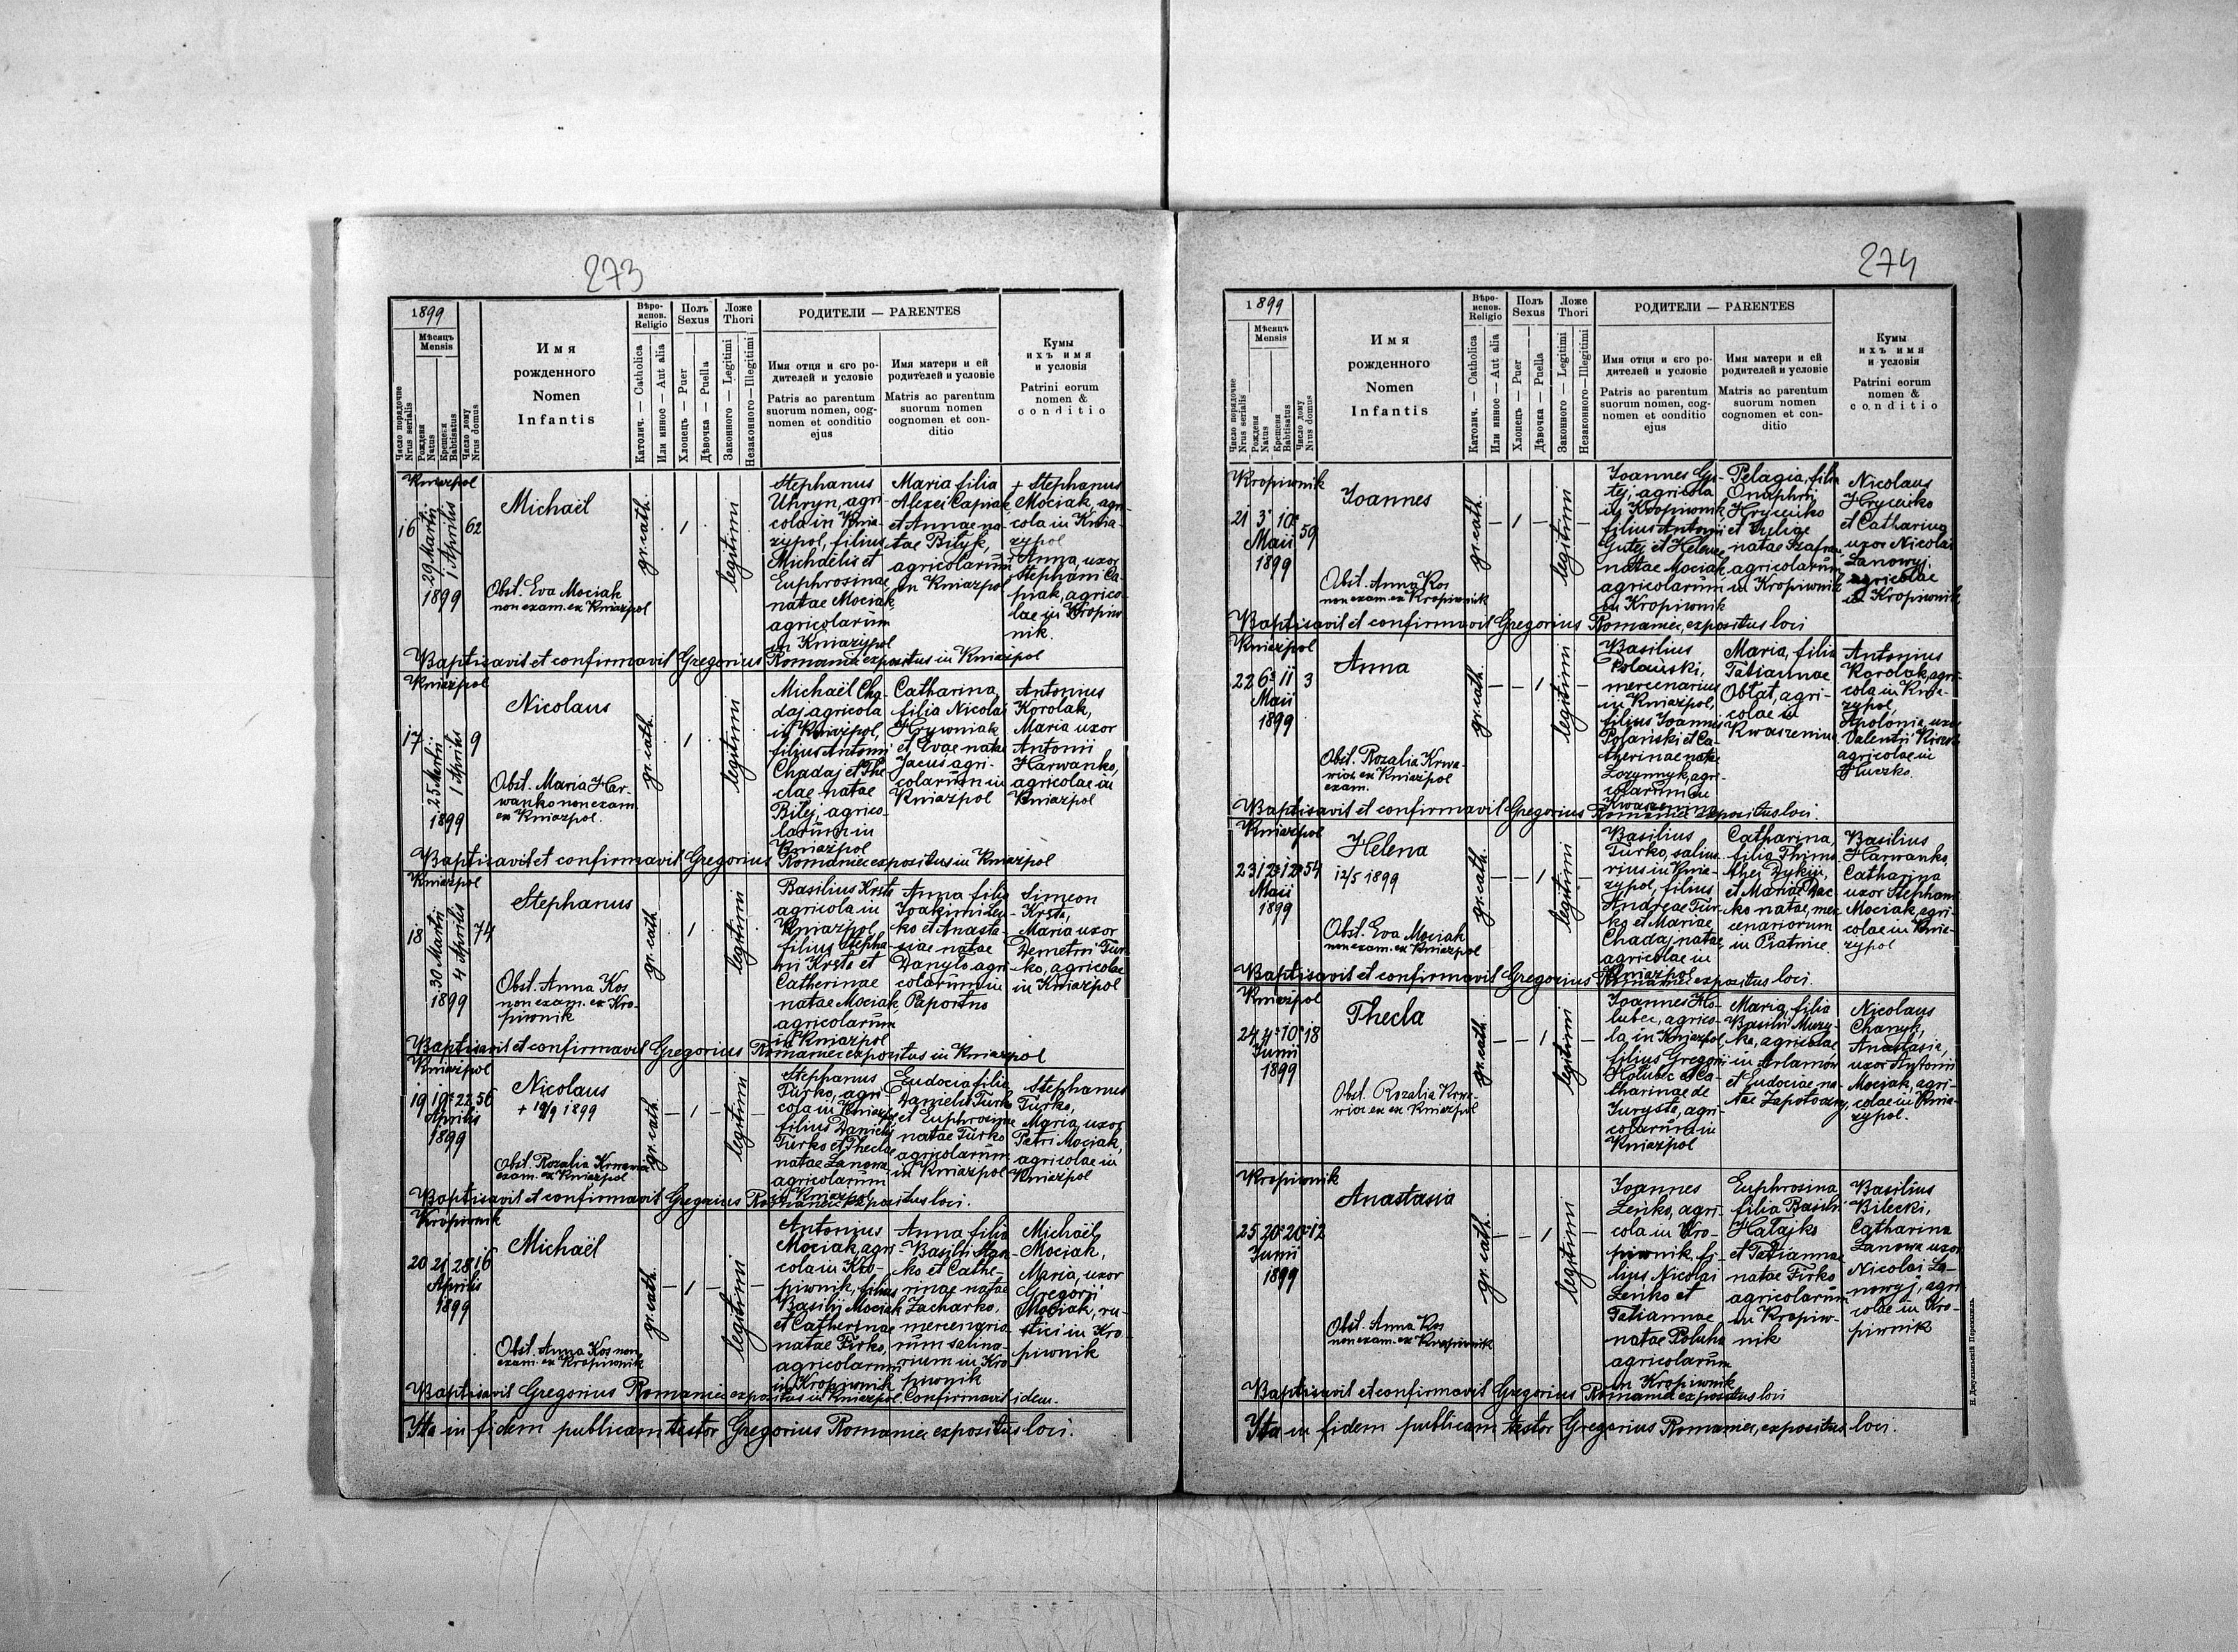 273
1899
Мѣсяцъ
Mensis
Число порядочне
Nrus serialis
Рожденя
Natus
Крещеня
Babtisatus
Число дому
Nrus domus
Имя
рожденного
Nomen
Infantis
Вѣро-
испов.
Religio
Католич. — Catholica
Или инное — Aut alia
Полъ
Sexus
Хлопецъ — Puer
Дѣвочка — Puella
Ложе
Thori
Законного — Legitimi
Незаконного — Illegitimi
РОДИТЕЛИ — PARENTES
Имя отця и єго ро-
дителей и условіє
Patris ac parentum
suorum nomen, cog-
nomen et conditio
ejus
Имя матери и єй
родителей и условіє
Matris ac parentum
suorum nomen
cognomen et con-
ditio
Кумы
ихъ имя
и условія
Patrini eorum
nomen &
conditio
Kniazpol
16
29 Martii
1 Aprilis
1899
62
Michaël
Obst. Eva Mociak
non exam. ex Kniazpol
gr. cath.
1
legitimi
Stephanus
Uhryn, agri
cola in Knia-
zypol, filius
Michaelis et
Euphrosinae
natae Mociak,
agricolarum
in Kniazypol
Maria filia
Alexei Capiak
et Annae na-
tae Bityk,
agricolarum
in Kniazpol
+ Stephanus
Mociak, agri-
cola in Knia-
zypol
Anna, uxor
Stephani Ca-
piak, agrico-
lae in Kropiw
nik.
Baptisavit et confirmavit Gregorius Romaniec expositus in Kniazpol
Kniazpol
17
25 Martii
1 Aprilis
1899
9
Nicolaus
Obst. Maria Har-
wanko non exam.
ex Kniazpol.
gr. cath.
1
legitimi
Michaël Cha-
daj agricola
in Kniazpol,
filius Antonii
Chadaj et The
clae natae
Bilej, agrico-
larum in
Kniazpol
Catharina,
filia Nicolai
Hrywniak
et Evae natae
Jacus agri-
colarum in
Kniazpol
Antonius
Korolak,
Maria uxor
Antonii
Harwanko,
agricolae in
Kniazpol
Baptisavit et confirmavit Gregorius Romaniec expositus in Kniazpol
Kniazpol
18
30 Martii
4 Aprilis
1899
74
Stephanus
Obst. Anna Kos
non exam. ex Kro-
piwnik
gr. cath
1
legitimi
Basilius Krsta
agricola in
Kniazpol,
filius Stepha-
ni Krsta et
Catherinae
natae Mociak,
agricolarum
in Kniazpol
Anna filia
Joakimi Le-
ko et Anasta-
siae natae
Danylo, agri
colarum in
Paportno
Simeon
Krsta,
Maria uxor
Demetrii Tur-
ko, agricolae
in Kniazpol
Baptisavit et confirmavit Gregorius Romaniec expositus in Kniazpol
Kniazpol
19 19 22 56
Aprilis
1899
Nicolaus
+ 19/9 1899
Obst. Rozalia Krwawicz
exam. ex Kniazpol
gr. cath.
1
legitimi
Stephanus
Turko, agri
cola in Kniazpol
filius Danielis
Turko et Theclae
natae Lanowa
agricolarum
in Kniazpol
Eudocia filia
Danielis Turko
et Euphrosinae
natae Turko
agricolarum
in Kniazpol
Stephanus
Turko,
Maria, uxor
Petri Mociak,
agricolae in
Kniazpol
Baptisavit et confirmavit Gregorius Romaniec expositus loci.
Kropiwnik
20 21 28 16
Aprilis
1899
Michaël
Obst. Anna Kos non
exam. ex Kropiwnik
gr. cath.
1
legitimi
Antonius
Mociak, agri-
cola in Kro-
piwnik, filius
Basilii Mociak
et Catherinae
natae Firko,
agricolarum
in Kropiwnik
Anna filia
Basilii
ko et Cathe-
rinae natae
Zacharko,
mercenario-
rum salina-
rium in Kro
piwnik
Michaël
Mociak,
Maria, uxor
Gregorii
Mociak, ru-
stici in Kro-
piwnik
Baptisavit Gregorius Romaniec expositus in Kniazpol. Confirmavit idem.
Ita in fidem publicam testor Gregorius Romaniec expositus loci.
274
1899
Мѣсяцъ
Mensis
Число порядочне
Nrus serialis
Рожденя
Natus
Крещеня
Babtisatus
Число дому
Nrus domus
Имя
рожденного
Nomen
Infantis
Вѣро-
испов.
Religio
Католич. — Catholica
Или инное — Aut alia
Полъ
Sexus
Хлопецъ — Puer
Дѣвочка — Puella
Ложе
Thori
Законного — Legitimi
Незаконного — Illegitimi
РОДИТЕЛИ — PARENTES
Имя отця и єго ро-
дителей и условіє
Patris ac parentum
suorum nomen, cog-
nomen et conditio
ejus
Имя матери и єй
родителей и условіє
Matris ac parentum
suorum nomen
cognomen et con-
ditio
Кумы
ихъ имя
и условія
Patrini eorum
nomen &
conditio
Kropiwnik
21 3 10 59
Maii
1899
Joannes
Obst. Anna Kos
non exam. ex Kropiwnik
gr. cath.
1
legitimi
Joannes Gu-
tej, agricola
in Kropiwnik
filius Antonii
Gutej et Helenae
natae Mociak,
agricolarum
in Kropiwnik
Pelagia, filia
Onuphrii
Hryciuko
et
natae
agricolarum
in Kropiwnik
Nicolaus
Hryciuko
et Catharina
uxor Nicolai
Lanowyj,
agricolae
in Kropiwnik
Baptisavit et confirmavit Gregorius Romaniec, expositus loci
Kniazpol
22 6 11 3
Maii
1899
Anna
Obst. Rozalia Krwa-
wicz ex Kniazpol
exam.
gr. cath.
1
legitimi
Basilius
Polański,
mercenarius
in Kniazpol,
filius Joannis
Polański et Ca-
therinae natae
Lozynnyk, agri-
colarum in
Kwaszenina
Maria, filia
Tatiannae
Obłat, agri-
colae in
Kwaszenina
Antonius
Korolak, agri-
cola in Knia-
zypol,
Apolonia, uxor
Valentii
agricolae in
Huczko
Baptisavit et confirmavit Gregorius Romaniec expositus loci.
Kniazpol
23 12 12 54
Maii
1899
Helena
12/5 1899
Obst. Eva Mociak
non exam. ex Kniazpol
gr. cath.
1
legitimi
Basilius
Turko, salina-
rius in Knia-
zypol, filius
Andreae Tur-
ko et Mariae
Chadaj natae
agricolae in
Kniazpol
Catharina,
filia Thimo-
thei Dykij,
et Mariae Dac-
ko natae, mer
cenariorum
in Piatnice
Basilius
Harwanko,
Catharina
uxor Stephani
Mociak, agri-
colae in Knia-
zypol
Baptisavit et confirmavit Gregorius Romaniec expositus loci.
Kniazpol
24 4 10 18
Junii
1899
Thecla
Obst. Rozalia Krwa-
wicz ex Kniazpol
gr. cath.
1
legitimi
Joannes Ho-
lubec, agrico-
la in Kniazpol,
filius Gregorii
Holubec et Ca-
tharinae de
Jurysta, agri-
colarum in
Kniazpol
Maria, filia
Basilii Muzy-
ka, agricolae
in Arlamow
et Eudociae na-
tae Zapotoczny,
Nicolaus
Chanyk,
Anastasia,
uxor Antonii
Mociak, agri-
colae in Knia-
zypol.
Kropiwnik
25 20 20 12
Junii
1899
Anastasia
Obst. Anna Kos
non exam. ex Kropiwnik
gr. cath.
1
legitimi
Joannes
Leńko, agri-
cola in Kro-
piwnik, fi-
lius Nicolai
Leńko et
Tatiannae
natae Poluha
agricolarum
in Kropiwnik
Euphrosina
filia Basilii
Hałajko
et Tatiannae
natae Firko
agricolarum
in Kropiw-
nik
Basilius
Bilecki,
Catharina
Lanowa uxor
Nicolai La-
nowyj, agri
colae in Kro-
piwnik
Baptisavit et confirmavit Gregorius Romaniec expositus loci
Ita in fidem publicam testor Gregorius Romaniec, expositus loci.